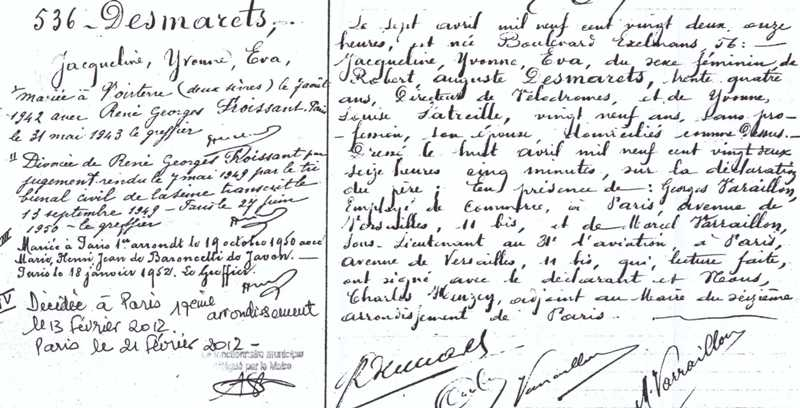 536 - Desmarets,
Jacqueline, Yvonne, Eva,
I Mariée à (deux sèvres) le août
1942 avec René Georges Froissant. Paris
le 31 mai 1943 le greffier
II Divorcée de René Georges Froissant par
jugement rendu le 7 mai 1949 par le tri
bunal civil de la seine transcrit le
13 septembre 1949 - Paris le 27 juin
1950 - le greffier
III Mariée à Paris 1er arrondt le 19 octobre 1950 avec
Marie, Henri Jean de Baroncelli de Javon. -
Paris le 18 janvier 1952. Le Greffier.
IV Décédée à Paris 17ème
arrondissement
le 13 février 2012.
Paris le 21 février 2012 -
Le fonctionnaire municipal
par le Maire
Le sept avril mil neuf cent vingt deux onze
heures, est née Boulevard Exelmans, 56: -
Jacqueline, Yvonne, Eva, du sexe féminin, de
Robert, Auguste Desmarets, trente quatre
ans, Directeur de Vélodromes, et de Yvonne,
Louise Latreille, vingt neuf ans, sans pro-
fession, son épouse, domiciliés comme dessus. -
Dressé le huit avril mil neuf cent vingt deux
seize heures cinq minutes, sur la déclaration
du père; en présence de: Georges Varraillon,
Employé de Commerce, à Paris, avenue de
Versailles, 11 bis, et de Marcel Varraillon,
Sous-Lieutenant au d'aviation, à Paris,
avenue de Versailles, 11 bis, qui, lecture faite,
ont signé avec le déclarant et Nous,
Charles adjoint au Maire du seizième
arrondissement de Paris.
R Desmarets
Varraillon
M. Varraillon